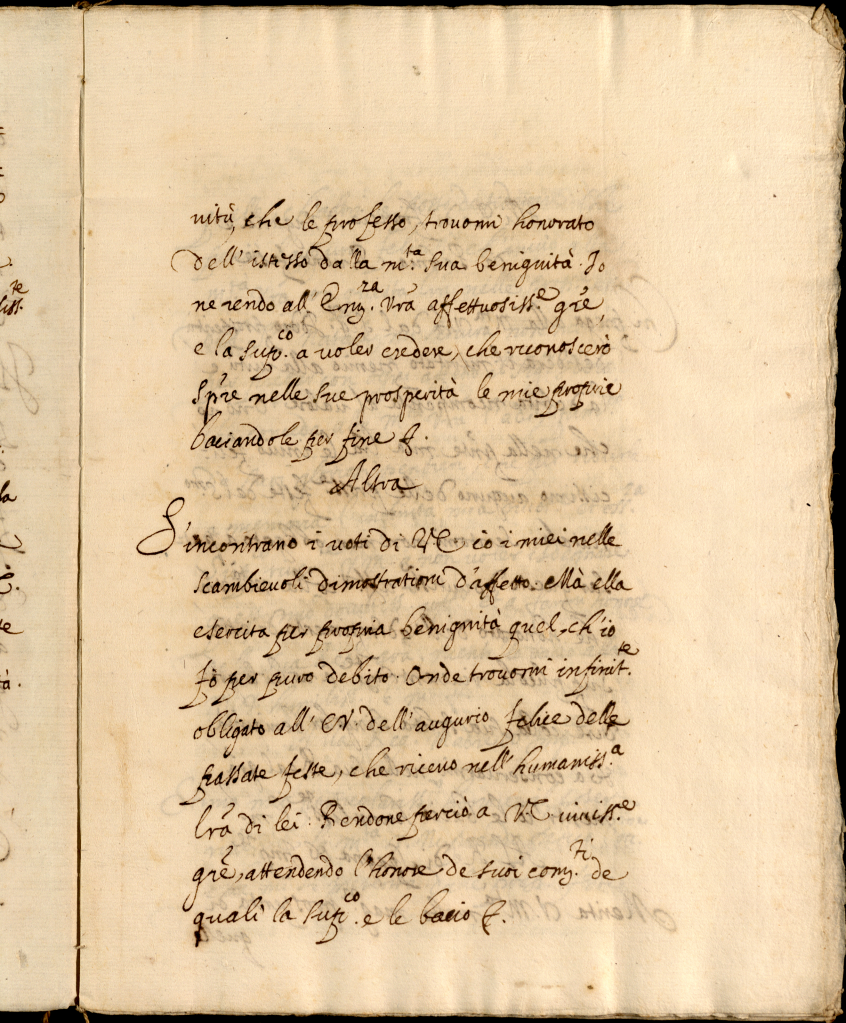 uitù, che le professo, trouomi honorato
dell' istesso dalla m.ta Sua benignità. Io
ne rendo all' Em.za Vrã affettuosiss.e grẽ,
e la supp.co a uoler credere, che riconoscerò
sprẽ nelle sue prosperità le mie proprie
baciandole per fine &.
Altra
S'incontrano i uoti di VE. cõ i miei nelle
scambieuoli dimostrationi d'affetto. Mà ella
esercita per propria benignità quel, ch'io
fò per puro debito. Onde trouomi infinit.te
obligato all' EV. dell' augurio felice delle
passate feste, che riceuo nell' humaniss.a
lrã di lei. Rendone perciò a V.E. uiuiss.e
grẽ, attendendo l'honore de suoi com.ti de
quali la supp.co e le bacio &.
la
te